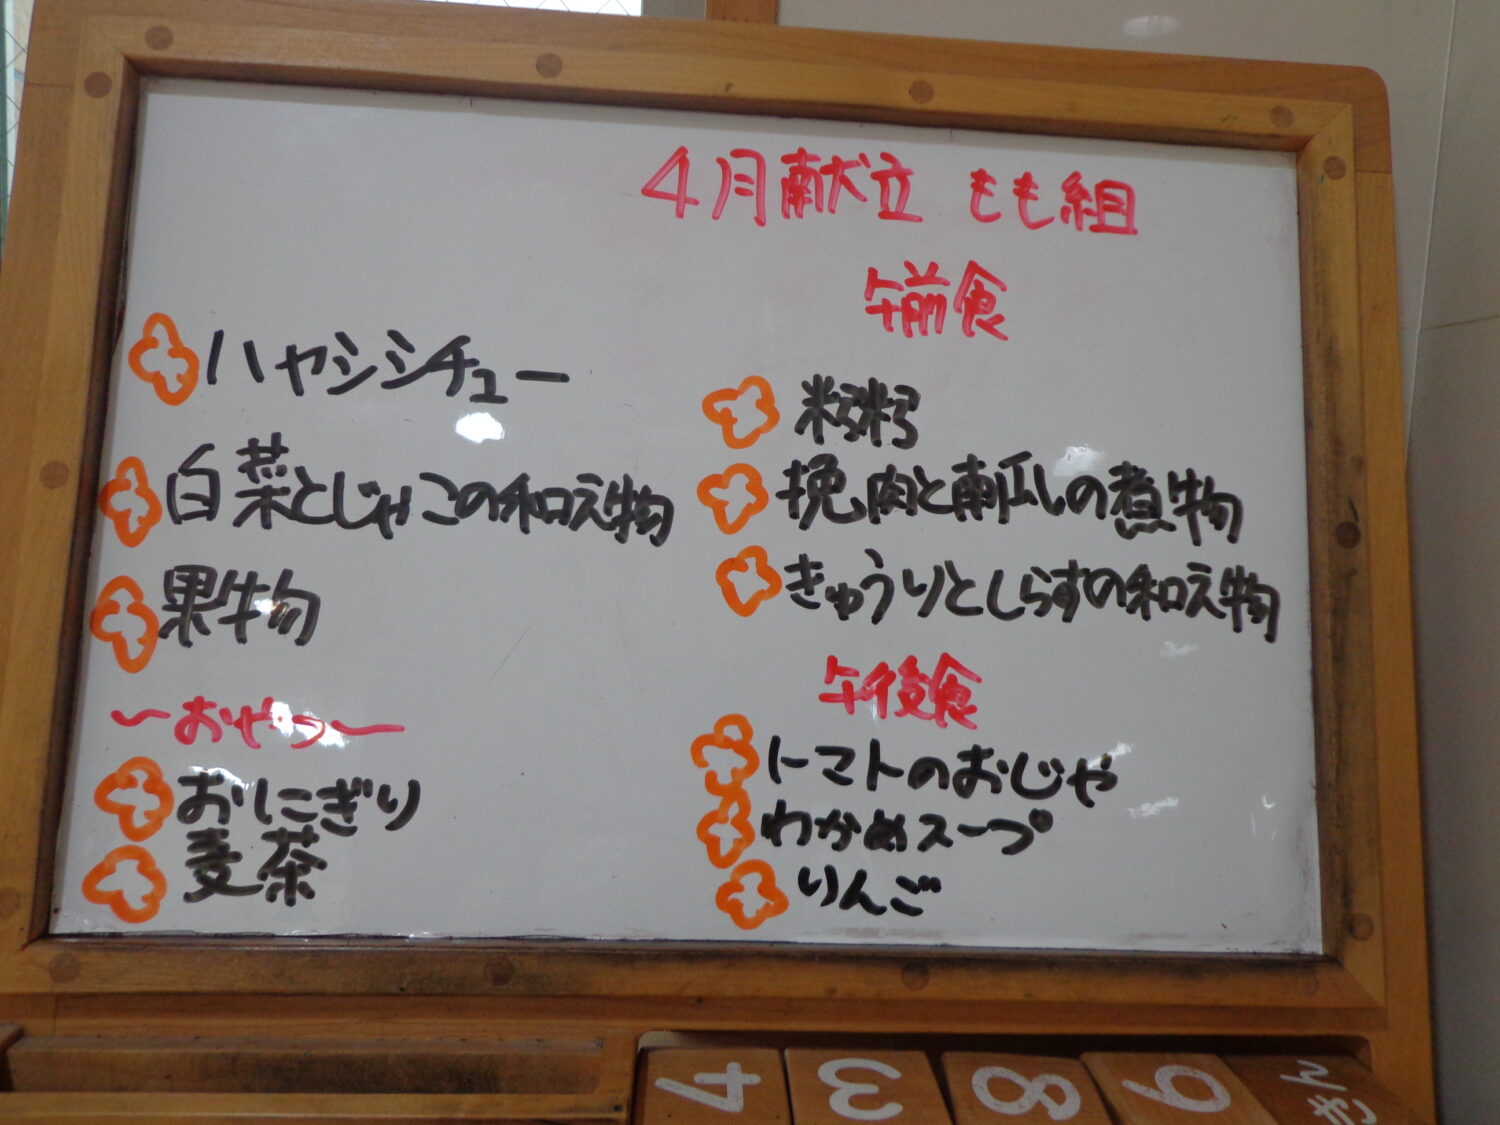 4月献立 もも組
ハヤシシチュー
白菜とじゃこの和え物
果物
〜おやつ〜
おにぎり
麦茶
午前食
粥粥
挽肉と南瓜の煮物
きゅうりとしらすの和え物
午後食
トマトのおじや
わかめスープ
りんご
4
3
8
6
きん